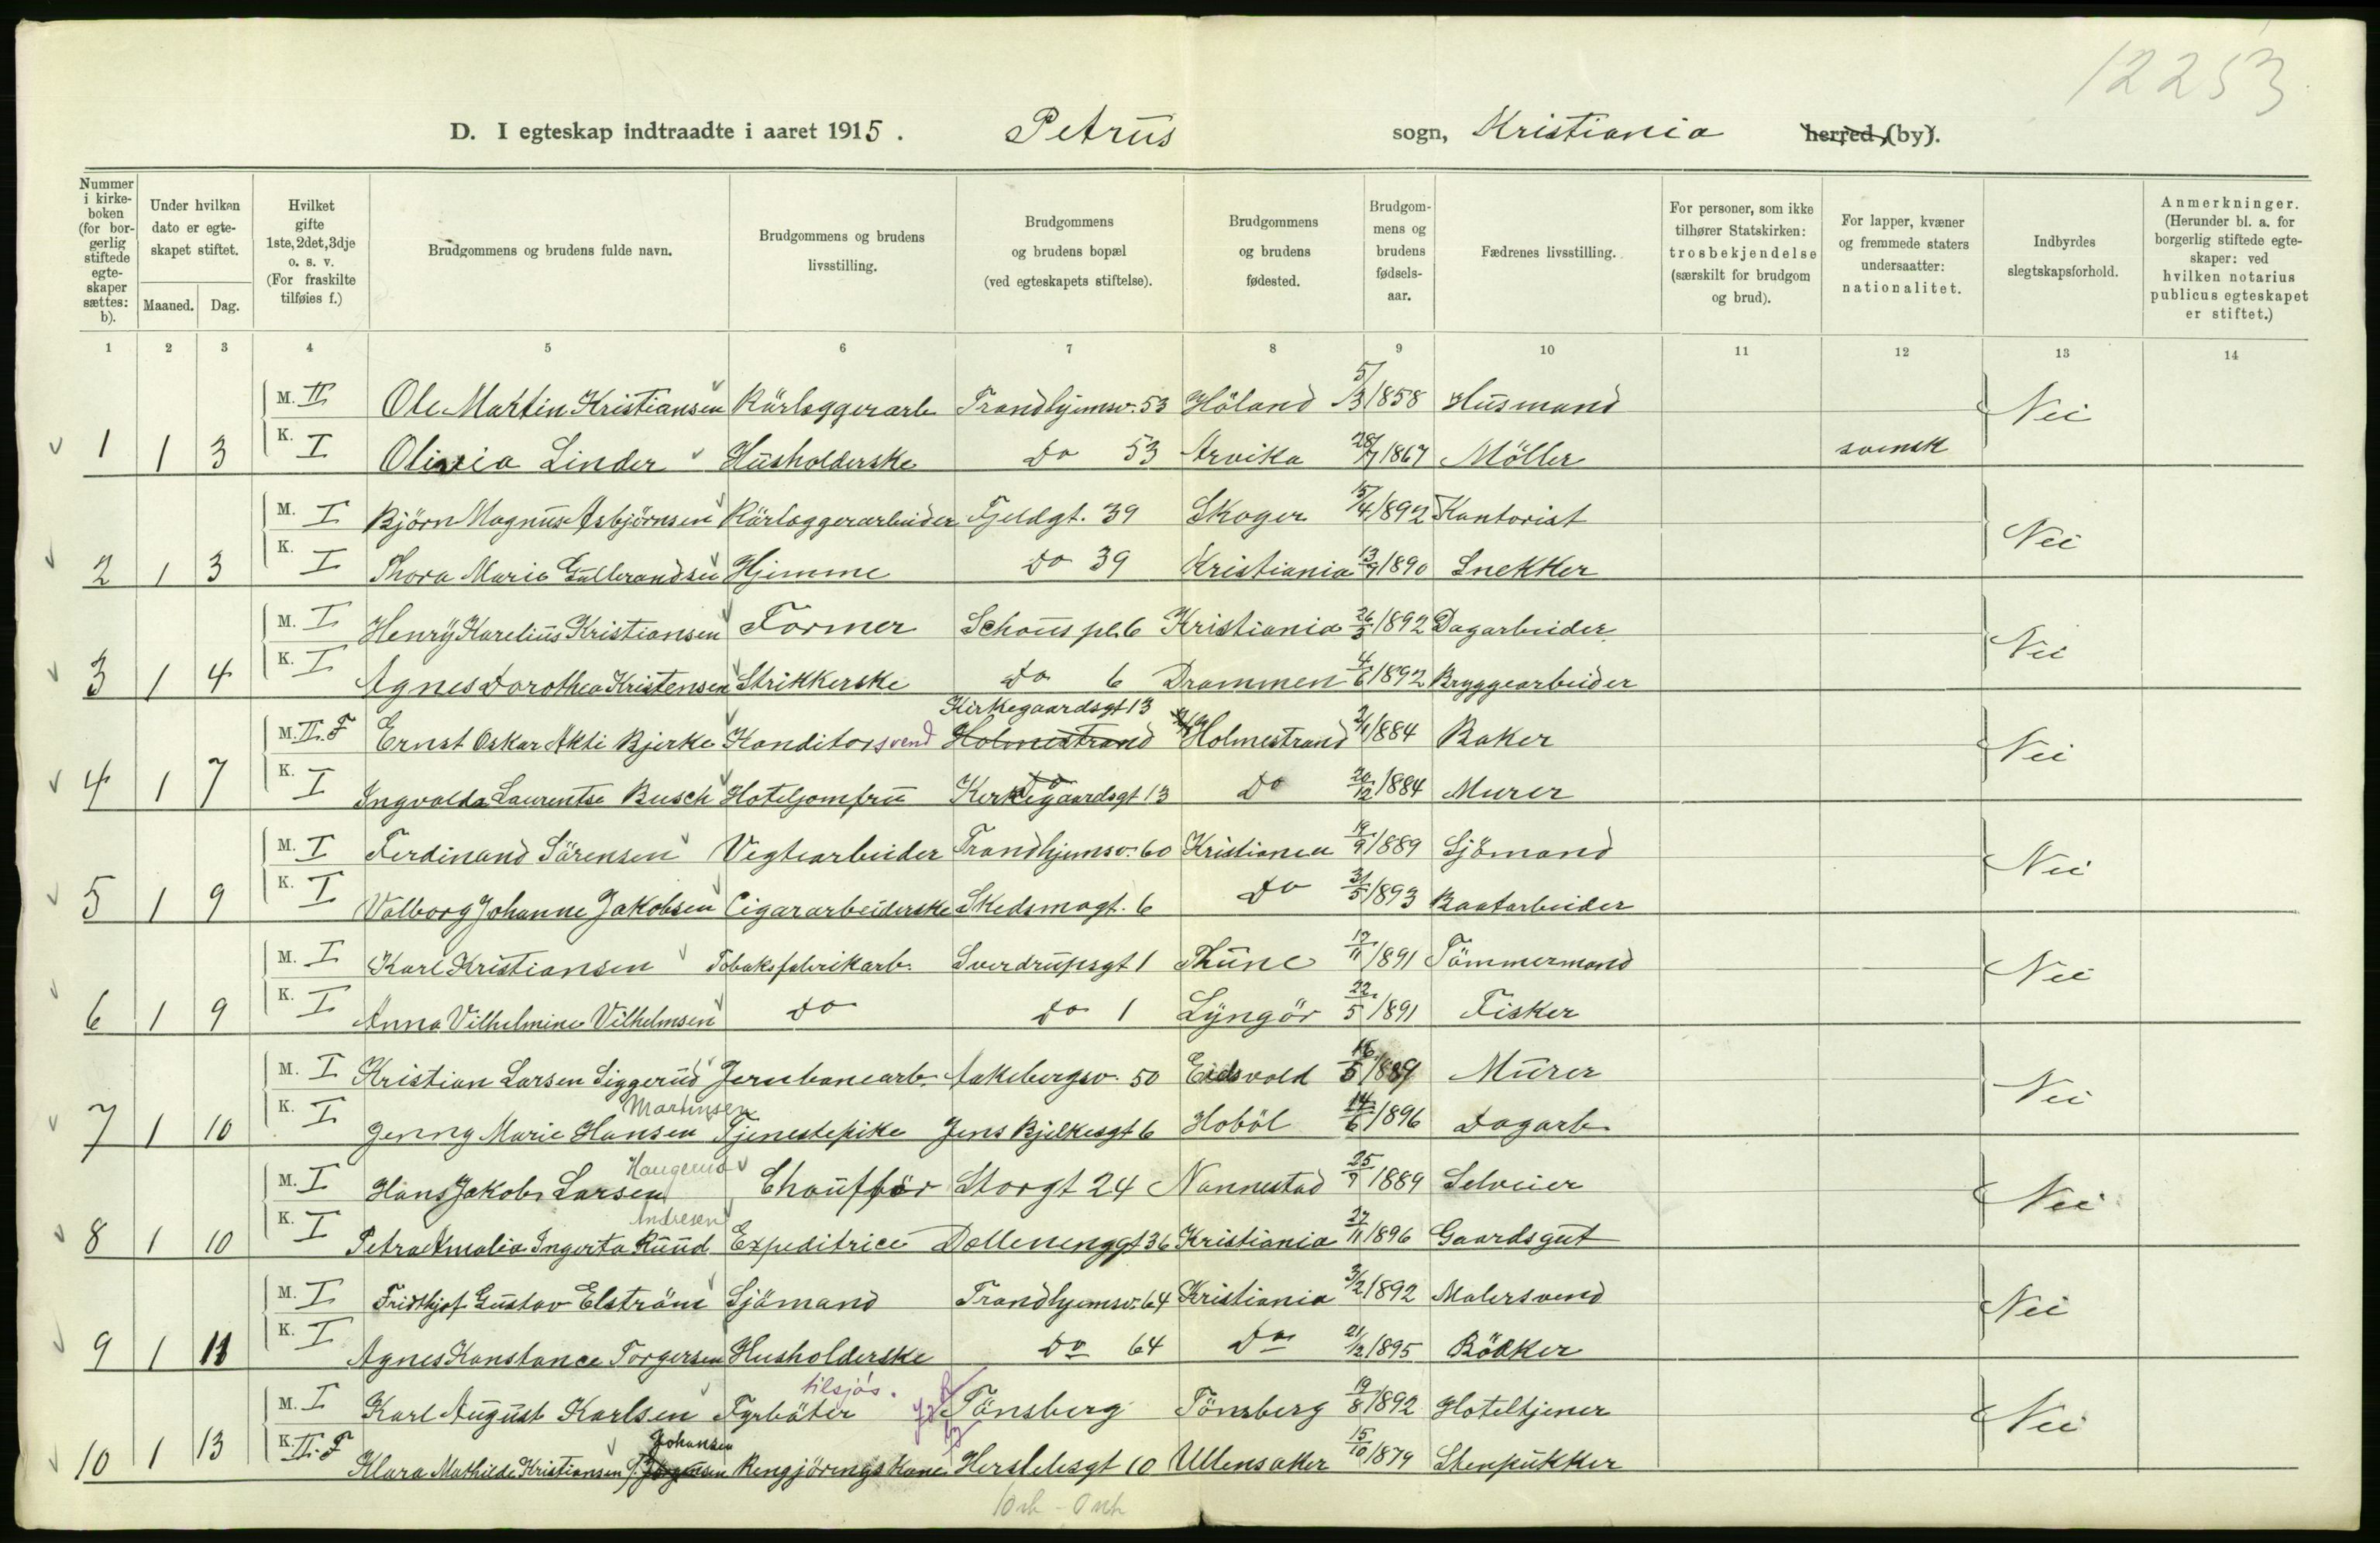 12253
D. I egteskap indtraadte i aaret 1915. Petrus sogn, Kristiania herred (by).
Nummer i kirkeboken (for borgerlig stiftede egteskaper sættes: b).
Under hvilken dato er egteskapet stiftet.
Maaned. Dag.
Hvilket gifte 1ste, 2det, 3dje o. s. v. (For fraskilte tilføies f.)
Brudgommens og brudens fulde navn.
Brudgommens og brudens livsstilling.
Brudgommens og brudens bopæl (ved egteskapets stiftelse).
Brudgommens og brudens fødested.
Brudgommens og brudens fødselsaar.
Fædrenes livsstilling.
For personer, som ikke tilhører Statskirken: trosbekjendelse (særskilt for brudgom og brud).
For lapper, kvæner og fremmede staters undersaatter: nationalitet.
Indbyrdes slegtskapsforhold.
Anmerkninger. (Herunder bl. a. for borgerlig stiftede egteskaper: ved hvilken notarius publicus egteskapet er stiftet.)
1 2 3 4 5 6 7 8 9 10 11 12 13 14
M. II Ole Martin Kristiansen Rörlæggerarb Trondhjemsv. 53 Höland 5/3 1858 Husmand Nei
1 1 3 K. I Olivia Linder Husholderske Do 53 Arvika 28/7 1867 Möller svensk
M. I Björn Magnus Asbjörnsen Rörlæggerarbeider Fjeldgt. 39 Skoger 15/4 1892 Kontorist Nei
2 1 3 K. I Thora Marie Gulbrandsen Hjemme Do 39 Kristiania 13/7 1890 Snekker
M. I Henry Karelius Kristiansen Former Schous pl. 6 Kristiania 26/3 1892 Dagarbeider Nei
3 1 4 K. I Agnes Dorothea Kristensen Strikkerske Do 6 Drammen 4/6 1892 Bryggearbeider
Kirkegaardsgt 13
M. II. F Ernst Oskar Akti Bjerke Konditorsvend Holmestrand Holmestrand 2/1 1884 Baker Nei
4 1 7 K. I Ingvalda Laurentse Busch Hoteljomfru Kirkegaardsgt 13 Do 20/12 1884 Murer
M. I Ferdinand Sörensen Vegtearbeider Trondhjemsv. 60 Kristiania 19/9 1889 Sjömand Nei
5 1 9 K. I Valborg Johanne Jakobsen Cigararbeiderske Skedsmogt. 6 Do 31/5 1893 Baatarbeider
M. I Karl Kristiansen Tobaksfabrikarb. Sverdrupsgt 1 Thune 17/11 1891 Tömmermand Nei
6 1 9 K. I Anna Vilhelmine Vilhelmsen Do Do 1 Lyngör 22/5 1891 Fisker
M. I Kristian Larsen Siggerud Jernbanearb. Aakebergsv. 50 Eidsvold 16/5 1889 Murer Nei
Martinsen
7 1 10 K. I Jenny Marie Hansen Tjenestepike Jens Bjelkesgt 6 Hoböl 14/6 1896 Dagarb.
Haugerud
M. I Hans Jakob Larsen Chaufför Storgt 24 Nannestad 25/7 1889 Selveier Nei
Andresen
8 1 10 K. I Petra Amalia Ingerta Ruud Expeditrice Dællenenggt 36 Kristiania 27/11 1896 Gaardsgut
M. I Fridthjof Gustav Elström Sjömand Trondhjemsv. 64 Kristiania 3/2 1892 Malersvend Nei
9 1 11 K. I Agnes Konstance Torgersen Husholderske Do 64 Do 21/12 1895 Bödker
tilsjös.
M. I Karl August Karlsen Fyrböter Tönsberg Tönsberg 19/8 1892 Hoteltjener Nei
Johansen
10 1 13 K. II. F Klara Mathilde Kristiansen f. Jörgensen Rengjöringskone Herslebsgt 10 Ullensaker 15/10 1879 Stenpukker